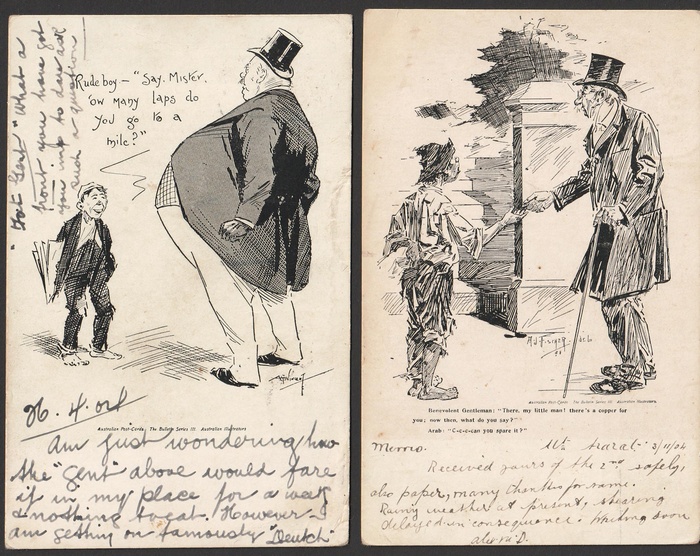 "Fat Gent" "What a
hont you have got
you imp to dare ask
such a question
Rude boy — "Say. Mister.
'ow many laps do
you go to a
mile?"
26. 4. 04
Australian Post-Cards. The Bulletin Series III. Australian Illustrators
Am just wondering how
the "gent" above would fare
if in my place for a week
& nothing to eat. However I
am getting on famously "Deutch"
A.J. Fischer
Australian Post-Cards The Bulletin Series III Australian Illustrators.
Benevolent Gentleman: "There, my little man! there's a copper for
you; now then, what do you say?"
Arab: "C-c-c-can you spare it?"
Memo. Mt. Ararat 3/11/04
Received yours of the 2nd safely,
also paper, many thanks for same.
Rainy weather at present, shearing
delayed in consequence. Writing soon